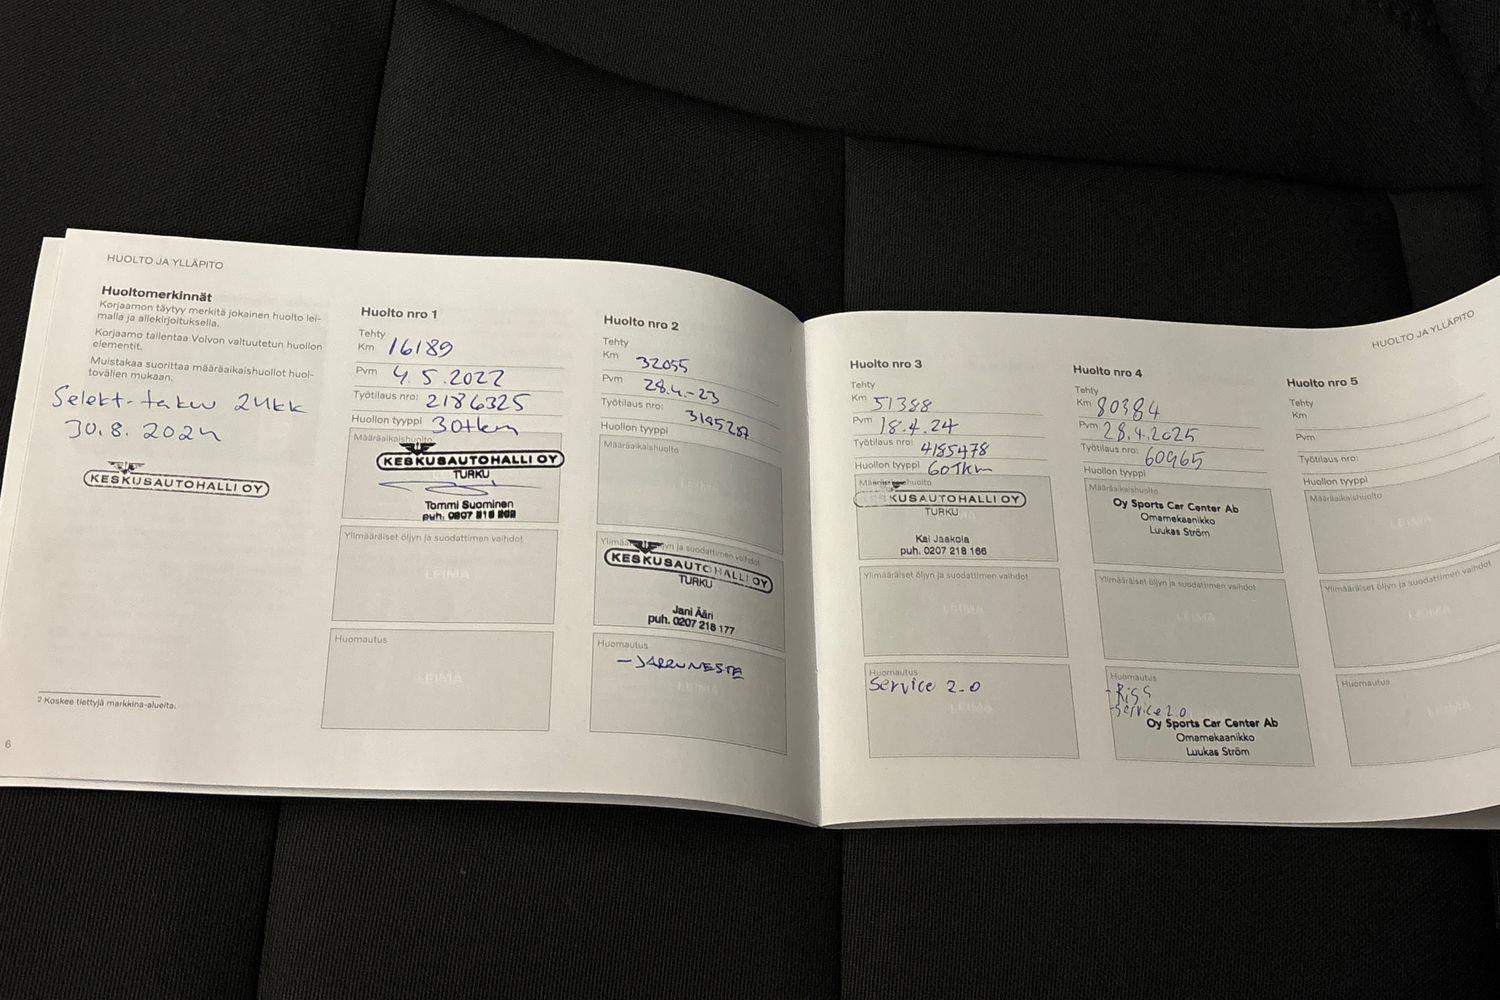 HUOLTO JA YLLÄPITO
Huoltomerkinnät
Korjaamon täytyy merkitä jokainen huolto lei-
malla ja allekirjoituksella.
Korjaamo tallentaa Volvon valtuutetun huollon
elementit.
Muistakaa suorittaa määräaikaishuollot huol-
tovälien mukaan.
Selekt-takuu 24kk
30.8. 2024
KESKUSAUTOHALLI OY
2 Koskee tiettyjä markkina-alueita.
6
Huolto nro 1
Tehty
Km 16189
Pvm 4.5.2022
Työtilaus nro: 2186325
Huollon tyyppi 30tkm
Määräaikaishuolto
KESKUSAUTOHALLI OY
TURKU
Tommi Suominen
puh. 0207 218
Ylimääräiset öljyn ja suodattimen vaihdot
LEIMA
Huomautus
LEIMA
Huolto nro 2
Tehty
Km 32055
Pvm 28.4.-23
Työtilaus nro: 3185287
Huollon tyyppi
Määräaikaishuolto
LEIMA
öljyn ja suodattimen vaihdot
KESKUSAUTOHALLI OY
TURKU
Jani Ääri
puh. 0207 218 177
Huomautus
- JARRUNESTE
LEIMA
HUOLTO JA YLLÄPITO
Huolto nro 3
Tehty
Km 51388
Pvm 18.4.24
Työtilaus nro: 4185478
Huollon tyyppi 60Tkm
KESKUSAUTOHALLI OY
TURKU
Kai Jaakola
puh. 0207 218 166
Ylimääräiset öljyn ja suodattimen vaihdot
LEIMA
Huomautus
Service 2.0
LEIMA
Huolto nro 4
Tehty
Km 80384
Pvm 28.4.2025
Työtilaus nro: 60965
Huollon tyyppi
Määräaikaishuolto
Oy Sports Car Center Ab
Omamekaanikko
Luukas Ström
Ylimääräiset öljyn ja suodattimen vaihdot
LEIMA
Huomautus
-Service 2.0
Oy Sports Car Center Ab
Omamekaanikko
Luukas Ström
Huolto nro 5
Tehty
Km
Pvm
Työtilaus nro:
Huollon tyyppi
Määräaikaishuolto
LEIMA
Ylimääräiset öljyn ja suodattimen vaihdot
LEIMA
Huomautus
LEIMA